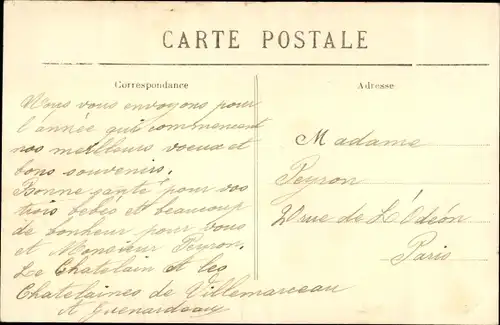 CARTE POSTALE
Correspondance
Nous vous envoyons pour
l'année qui commencent
nos meilleurs voeux et
bons souvenirs.
Bonne santé pour vos
trois bébés et beaucoup
de bonheur pour vous
et Monsieur Peyron.
Le Chatelain et les
Chatelaines de Villemareau
Adresse
Madame
Peyron
rue de L'Odéon
Paris